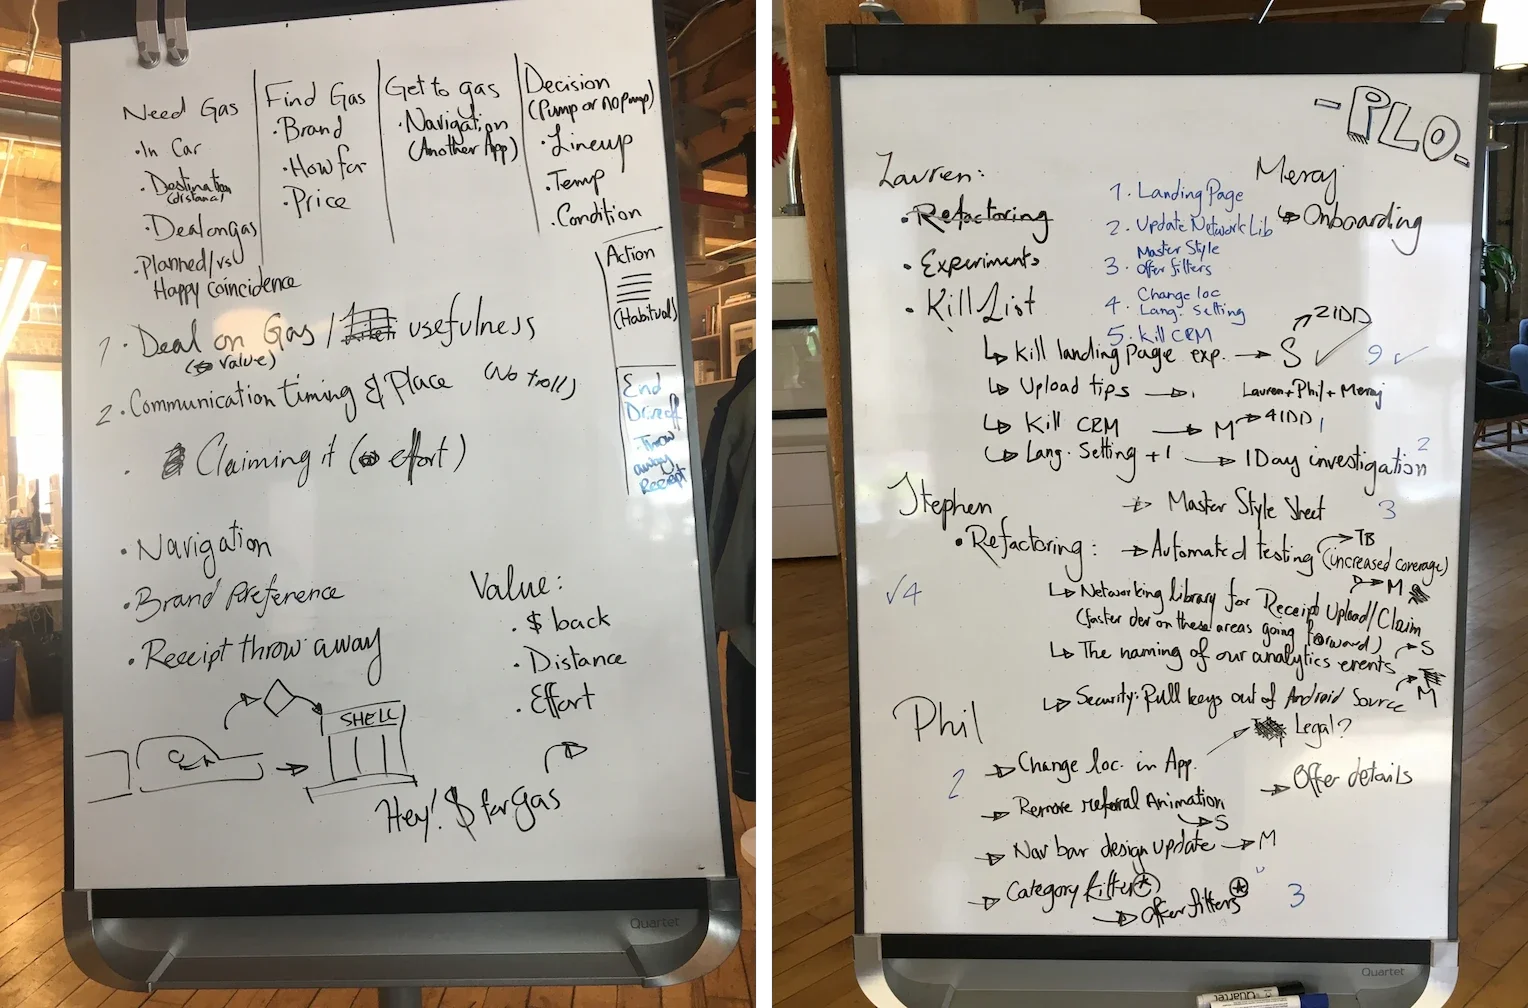 Need Gas
· In Car
· Destination
(distance)
· Deal on gas
· Planned/vs
Happy coincidence
Find Gas
· Brand
· How far
· Price
Get to gas
· Navigation
(Another App)
Decision
(Pump or no pump)
· Lineup
· Temp
· Condition
Action
(Habitual)
End
· Throw
away
Receipt
1. Deal on Gas / usefulness
(value)
2. Communication timing & Place (No troll)
· Claiming it (effort)
· Navigation
· Brand Preference
· Receipt throw away
Value:
· $ back
· Distance
· Effort
SHELL
Hey! $ for gas
Quartet
- PILO -
Lauren:
· Refactoring
· Experiments
· Kill List
1. Landing Page
2. Update Network Lib
Master Style
3. Offer filters
4. Change loc
Lang. Setting
5. Kill CRM
Meraj
↳ Onboarding
↳ Kill landing page exp. → S ✓ 9 ✓
→ 2IDD
↳ Upload tips → 1 Lauren + Phil + Meraj
↳ Kill CRM → M → 4IDD 1
↳ Lang. Setting + 1 → 1 Day investigation 2
→ Master Style Sheet 3
Stephen
· Refactoring: → Automated testing (increased coverage)
→ TB
→ M
√4
↳ Networking library for Receipt Upload/Claim
(faster dev on these areas going forward)
↳ The naming of our analytics events → S
↳ Security: Pull keys out of Android Source → M
Phil
Legal?
2 → Change loc. in App.
→ Offer details
→ Remove referral Animation
→ S
→ Nav bar design update → M
→ Category filter
→ Offer filters 3
Quartet
Quartet